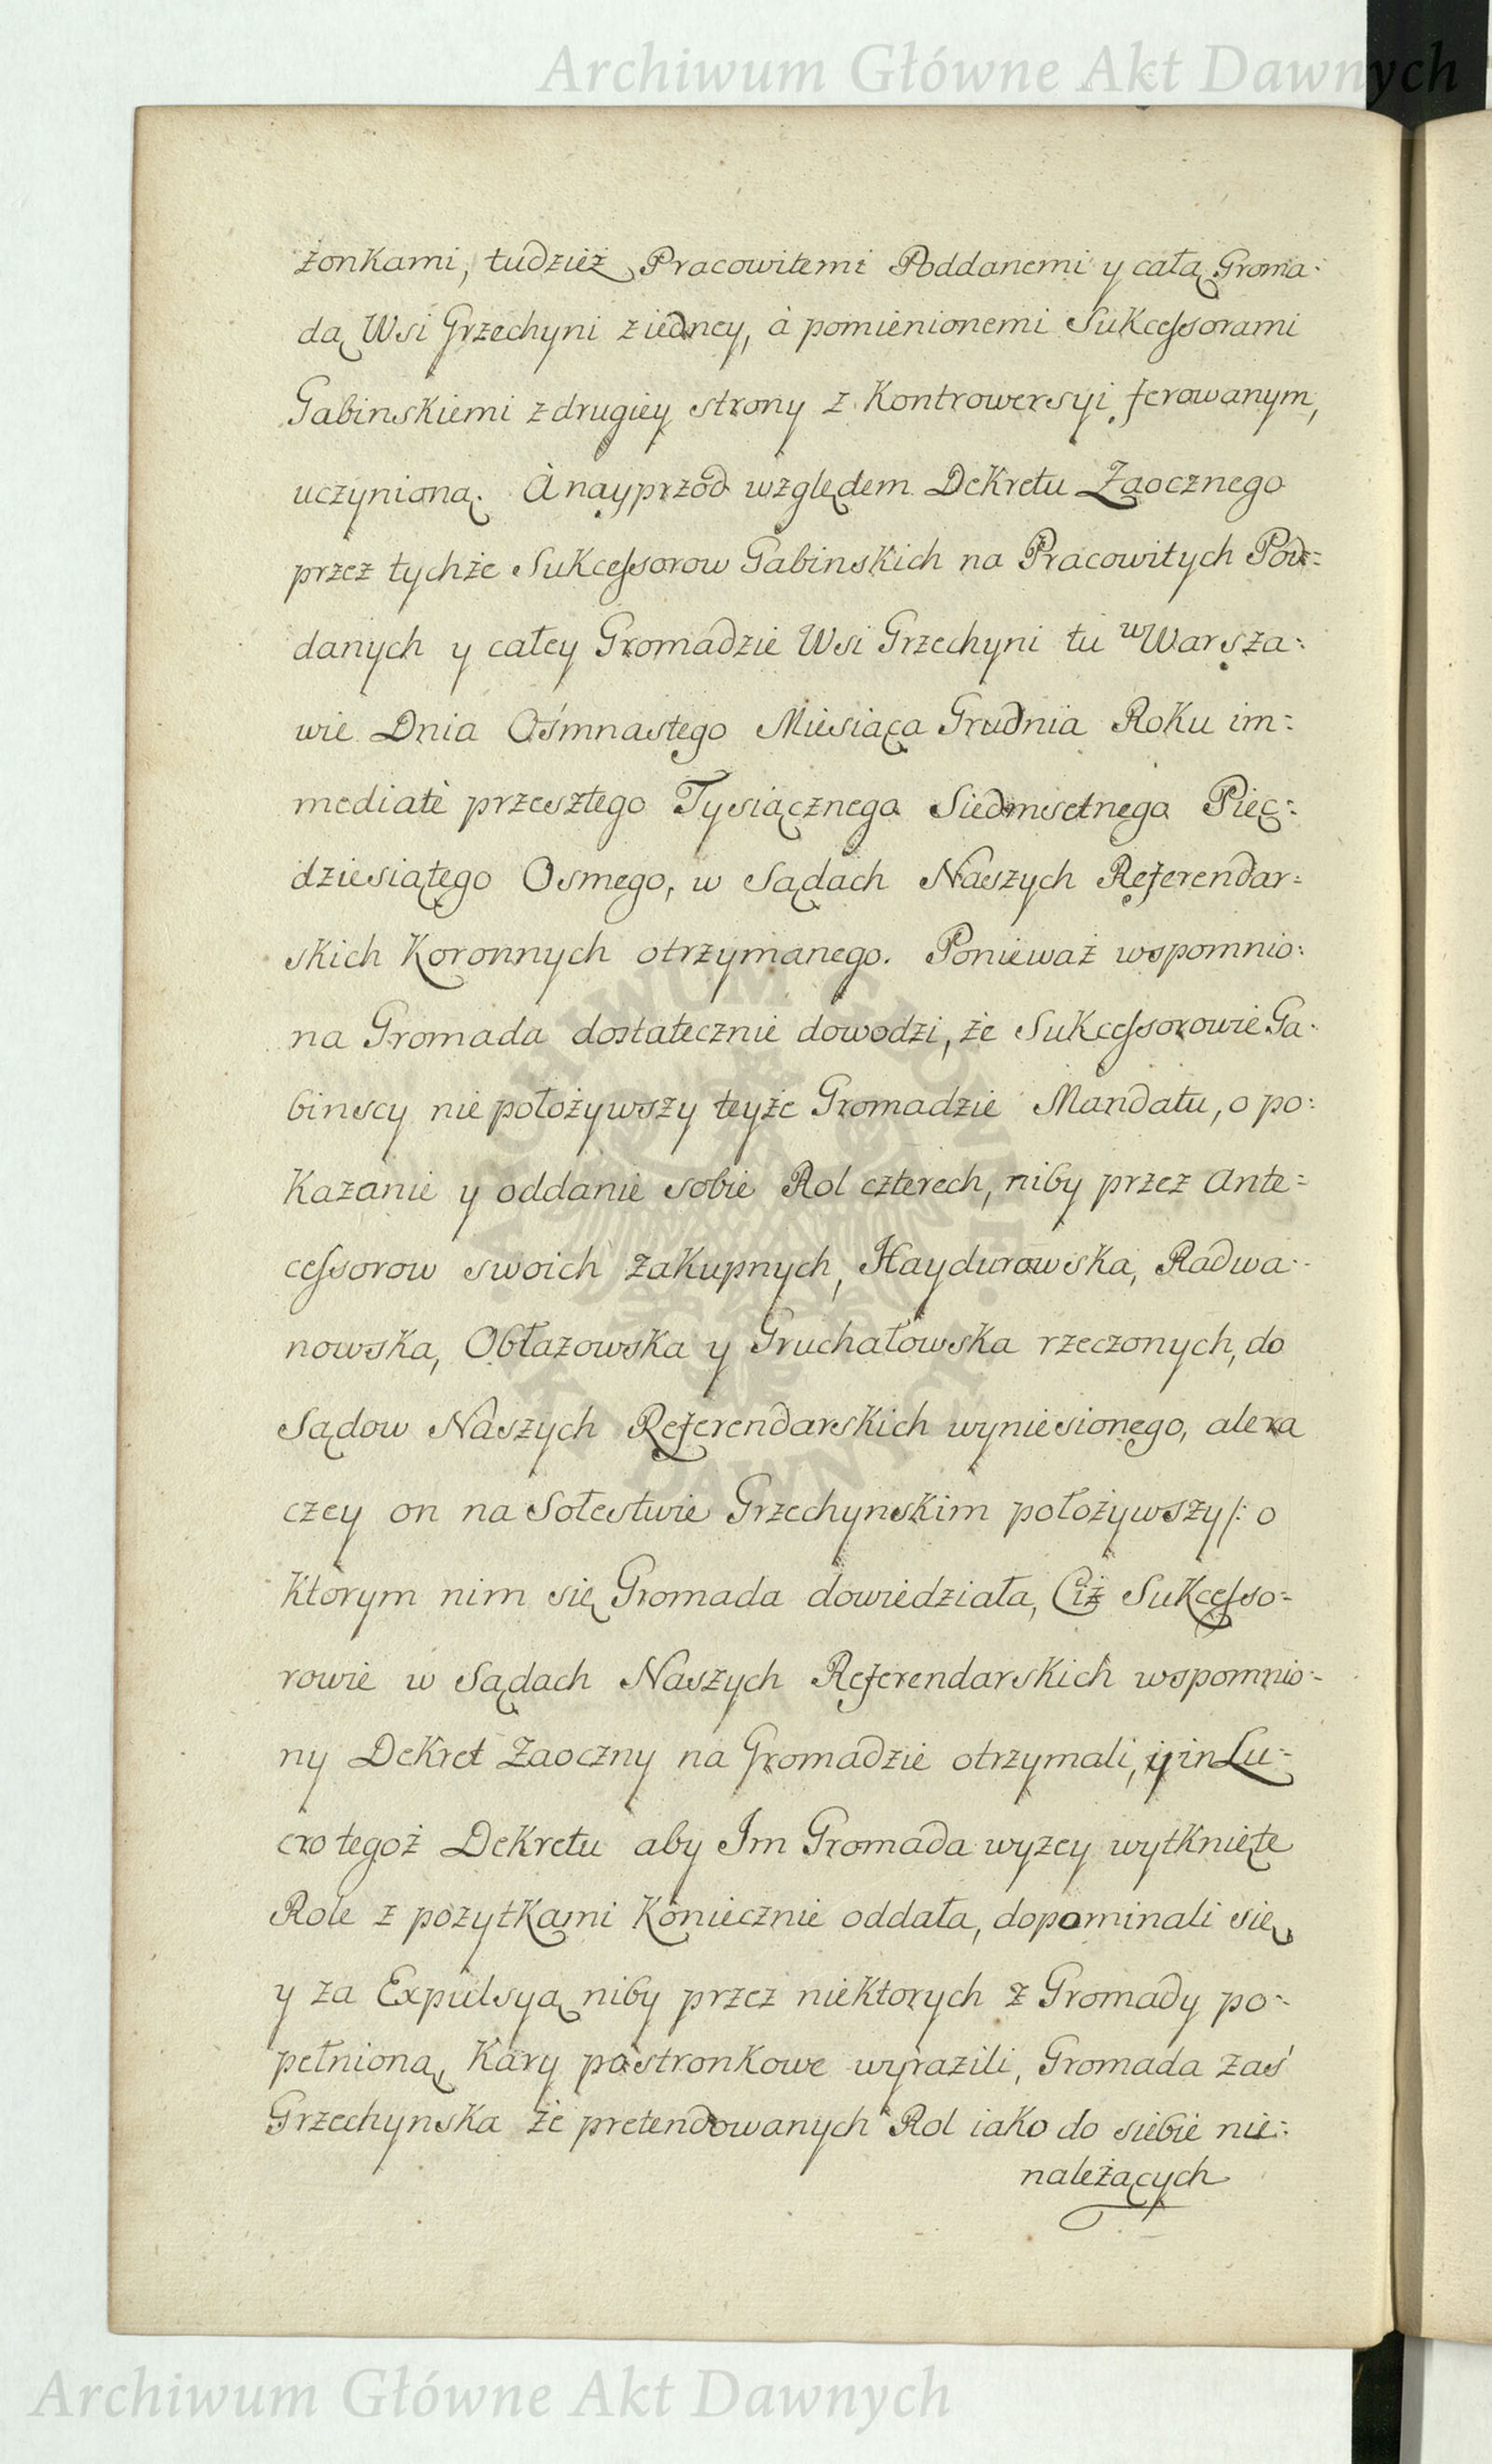 Archiwum Główne Akt Dawnych
żonkami, tudzież Pracowitemi Poddanemi y całą Groma:
dą Wsi Grzechyni z iedney, à pomienionemi Sukcessorami
Gabinskiemi z drugiey strony z Kontrowersyi ferowanym,
uczynioną. A nayprzód względem Dekretu Zaocznego
przez tychże Sukcessorow Gabinskich na Pracowitych Pod=
danych y całey Gromadzie Wsi Grzechyni tu w Warsza:
wie Dnia Ośmnastego Miesiąca Grudnia Roku im=
mediatè przeszłego Tysiącznego Siedmsetnego Pięć:
dziesiątego Osmego, w Sądach Naszych Referendar=
skich Koronnych otrzymanego. Ponieważ wspomnio:
na Gromada dostatecznie dowodzi, że Sukcessorowie Ga:
binscy nie położywszy teyże Gromadzie Mandatu, o po:
kazanie y oddanie sobie Rol czterech, niby przez Ante=
cessorow swoich zakupnych, Haydurowska, Radwa:
nowska, Obłazowska y Gruchałowska rzeczonych, do
Sądow Naszych Referendarskich wyniesionego, ale ra
czey on na Sołestwie Grzechynskim położywszy /: o
ktorym nim się Gromada dowiedziała, Ciż Sukcesso=
rowie w Sądach Naszych Referendarskich wspomnio=
ny Dekret Zaoczny na Gromadzie otrzymali, y in Lu=
cro tegoż Dekretu aby Im Gromada wyzey wytknięte
Role z pożytkami koniecznie oddała, dopominali się,
y za Expulsyą niby przez niektorych z Gromady po=
pełnioną, Kary postronkowe wyrazili, Gromada zaś
Grzechynska że pretendowanych Rol iako do siebie nie:
należących
ARCHIWUM GŁÓWNE AKT DAWNYCH
Archiwum Główne Akt Dawnych